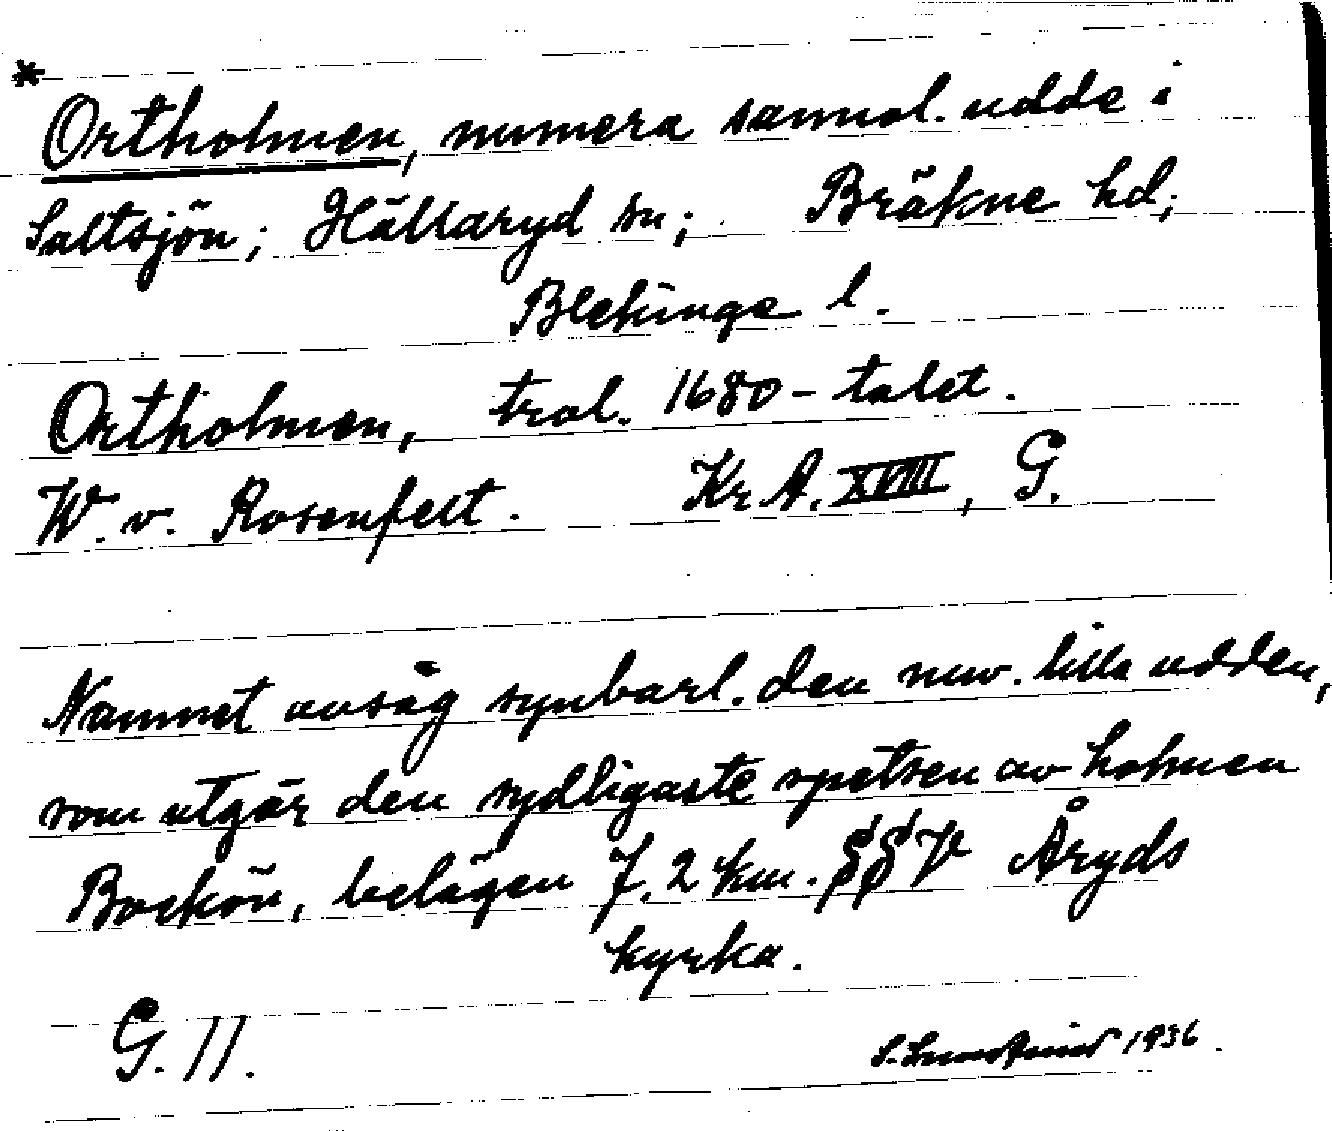 *
Ortholmen, numera sannol. udde i
Saltsjön; Hällaryd sn; Bräkne hd;
Blekinge l.
Ortholmen, trol. 1680-talet.
W. v. Rosenfelt. Kr. A. XVIII, G.
Namnet avsåg synbarl. den nuv. lilla udden,
som utgör den sydligaste spetsen av holmen
Bockön, belägen 7.2 km. SSV Åryds
kyrka.
G. 11.
1936.